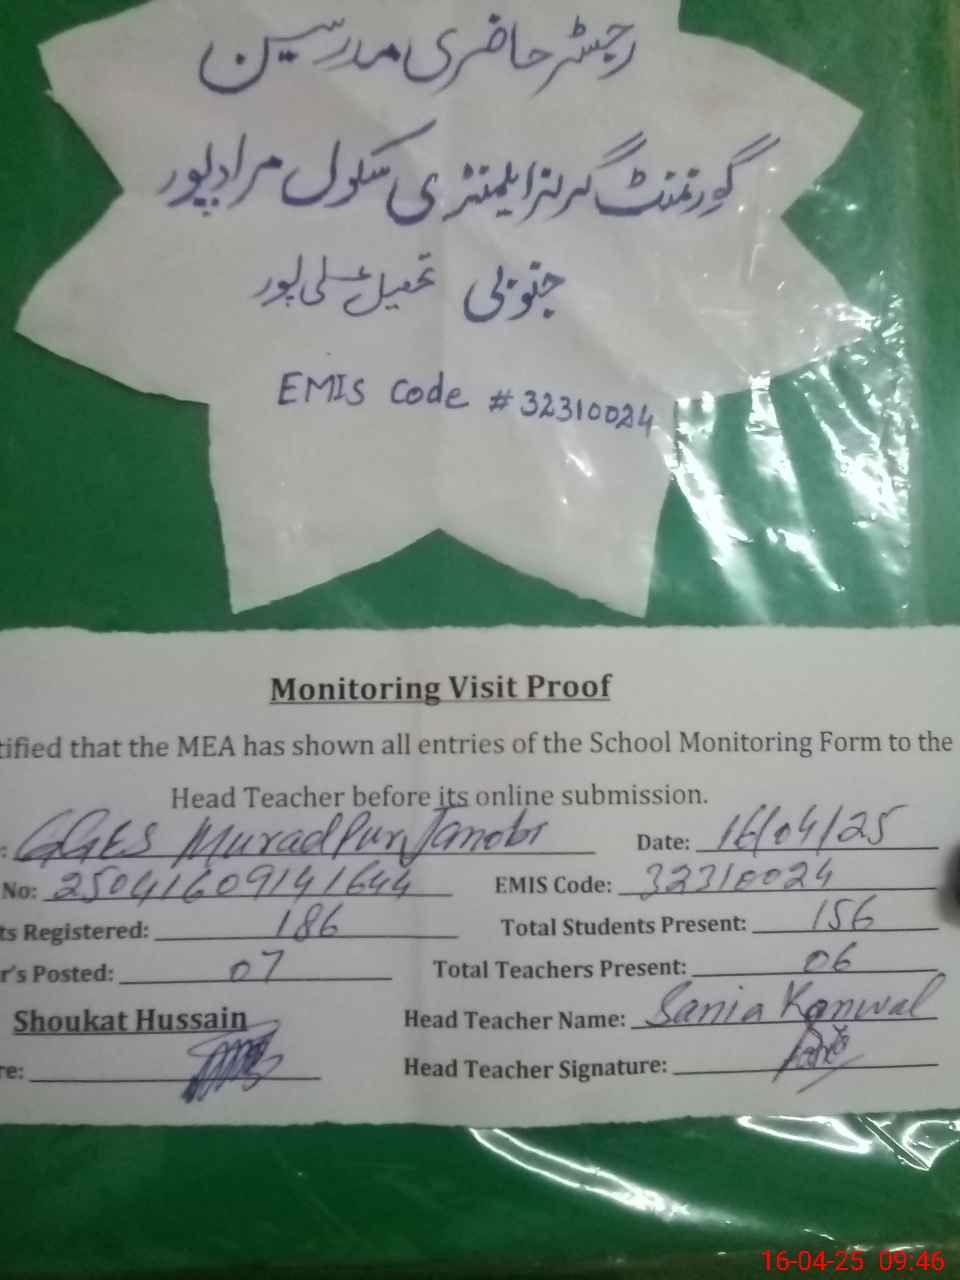 رجسٹر حاضری مدرسین
گورنمنٹ گرلز ایلیمنٹری سکول مرادپور
جنوبی تحصیل علی پور
EMIS Code # 32310024
Monitoring Visit Proof
tified that the MEA has shown all entries of the School Monitoring Form to the
Head Teacher before its online submission.
: GGES Muradpur Janobi Date: 16/04/25
No: 25041609141644 EMIS Code: 32310024
ts Registered: 186 Total Students Present: 156
r's Posted: 07 Total Teachers Present: 06
Shoukat Hussain Head Teacher Name: Sania Kanwal
re: Head Teacher Signature:
16-04-25 09:46